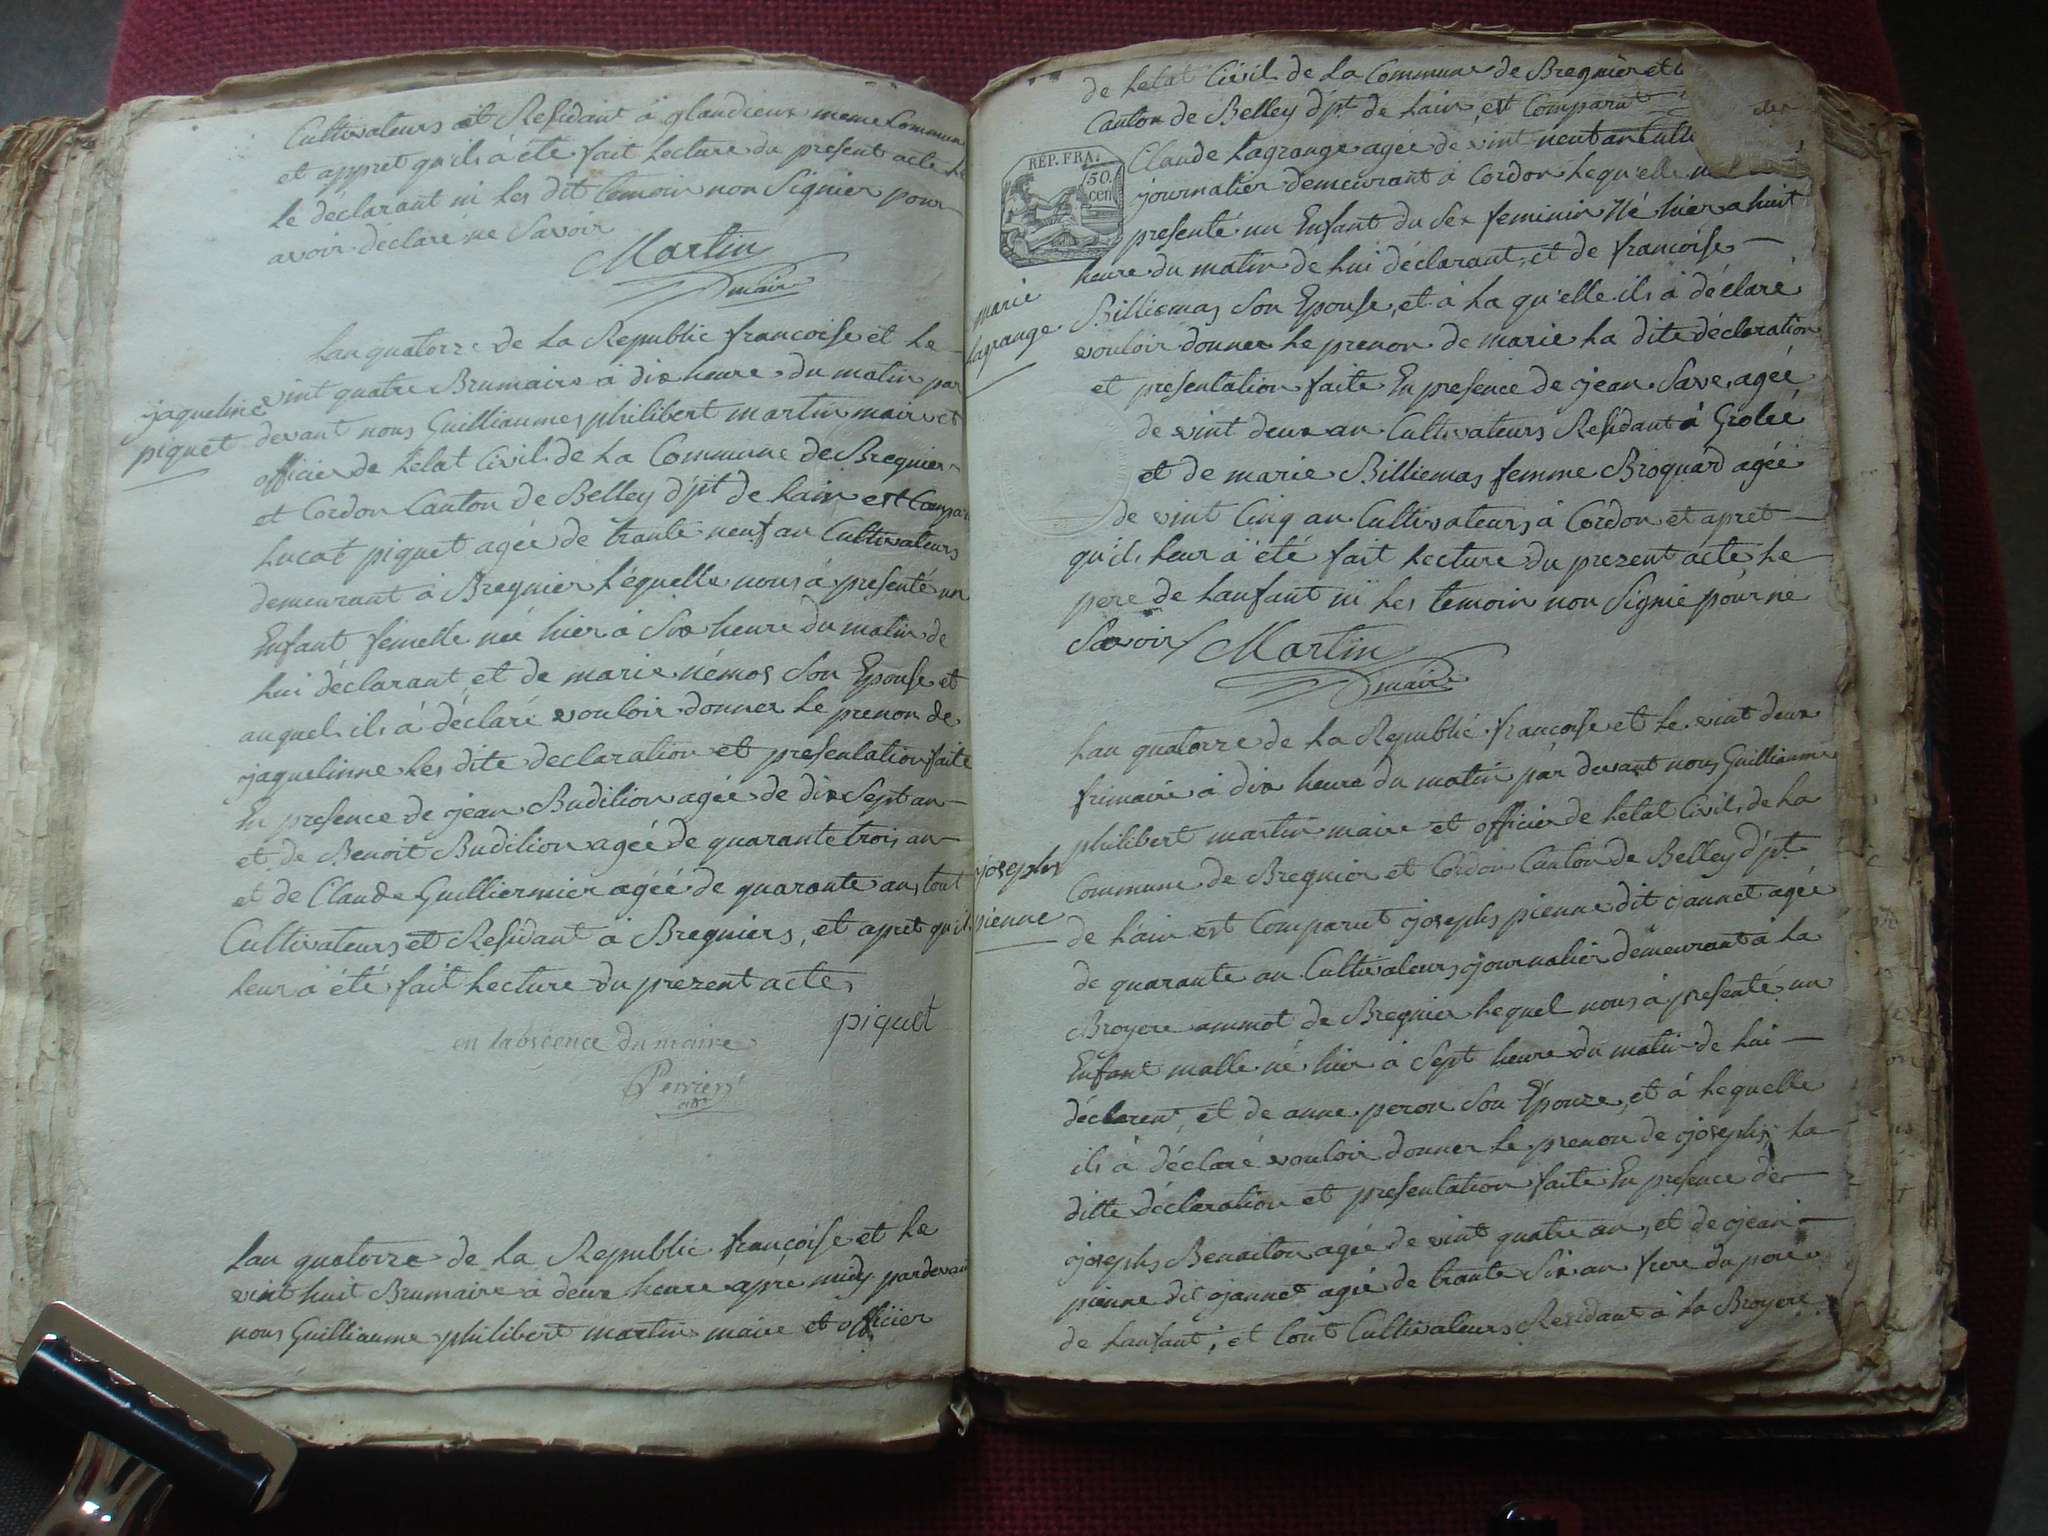 Cultivateurs et Residant à glandieux meme Commune
et appret qu'ils à été fait lecture du present acte le
le déclarant ni les dit temoin non Signier pour
avoir déclaré ne Savoir
Martin
maire
Lan quatorze de la Republic françoise et le
vint quatre Brumaire à dix heure du matin par
jaqueline
piquet
devant nous Guilliaumes philibert martin maire et
officier de letat Civil de la Commune de Bregnier
et Cordon Canton de Belley dpt de lain est Compar
lucat piquet agée de trante neuf an Cultivateurs
demeurant à Bregnier léquelle nous à presenté un
Enfant femelle née hier à Six heure du matin de
lui déclarant et de marie némos Son Epouse et
auquel ils à déclaré vouloir donner le prenon de
jaquelinne les dite declaration et presentation faite
En presence de jean Budilion agée de dix Sept an
et de Benoit Budilion agée de quarante trois an
et de Claude Guilliermier agée de quarante an tout
Cultivateurs et Residant à Bregniers, et apret qu'il
leur à été fait lecture du prezent acte
piquet
en labscence du maire
Perrier
Lan quatorze de la Republic françoise et le
vint huit Brumaire à deux heure aprè midy pardevant
nous Guilliaume philibert martin maire et officier
de letat Civil de la Commune de Bregnier et
Canton de Belley dpt de lain, est Comparut
REP. FRA.
50
cen
Claude lagrange agée de vint neuf an
journalier demeurant à Cordon lequ'elle
presenté un Enfant du Sex feminin Né hier a huit
heure du matin de lui déclarant, et de francoise
marie
lagrange
Billiemas Son Epouse, et à la qu'elle ils à déclaré
vouloir donner le prenon de marie la dite déclaration
et presentation faite En presence de jean Save agée
de vint deux an Cultivateurs Residant à Grolée
et de marie Billiemas femme Broquard agée
de vint Cinq an Cultivateurs à Cordon et apret
qu'ils leur à été fait lecture du prezent acte le
pere de lanfant ni les temoin non Signié pour ne
Savoir
Martin
maire
Lan quatorze de la Republic françoise et le vint deux
frimaire à dix heure du matin par devant nous Guilliaume
philibert martin maire et officier de letat Civil de la
Commune de Bregnier et Cordon Canton de Belley dpt
josephs
pienne
de lain est Comparut josephs pienne dit jannet agée
de quarante an Cultivateurs journalier demeurant à la
Broyere ammot de Bregnier lequel nous à presenté un
Enfant malle né hier à Sept heure du matin de lui
déclarent, et de anne peron Son Epouze, et à lequelle
ils à déclaré vouloir donner le prenon de josephs la
ditte déclaration et presentation faite En presence de
josephs Benaiton agée de vint quatre an, et de jean
pienne dit jannet agée de trante Six an frere du pere
de lanfant, et tout Cultivateurs Residant à la Broyere